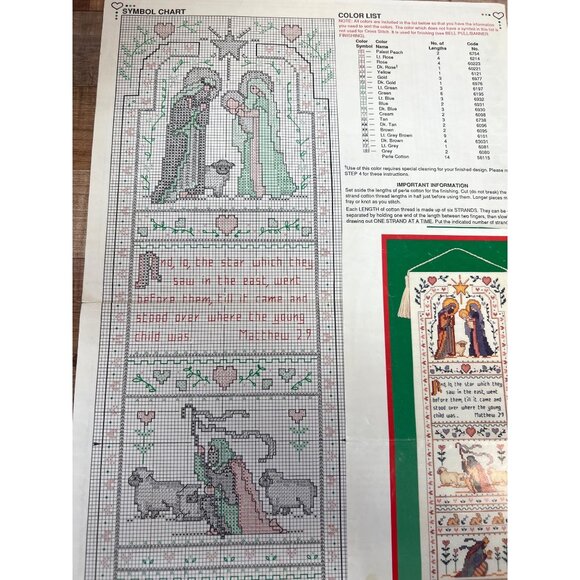 SYMBOL CHART
And, lo, the star which they
saw in the east, went
before them, till it came and
stood over where the young
child was. Matthew 2:9
COLOR LIST
NOTE: All colors are included in the list below so that you have the information
you need to sort the colors. The color which does not have a symbol in this list is
not used for Cross Stitch. It is used for finishing (see BELL PULL/BANNER
FINISHING).
Color Symbol Color Name No. of Lengths Code No.
Palest Peach 2 6754
Lt. Rose 4 6214
Rose 4 60223
Dk. Rose† 4 60221
Yellow 1 6121
Gold 3 6977
Dk. Gold 1 6976
Lt. Green 3 6197
Green 8 6195
Lt. Blue 3 6932
Blue 2 6931
Dk. Blue 3 6930
Cream 2 6098
Tan 3 6738
Dk. Tan 2 6096
Brown 2 6095
Lt. Grey Brown 9 6101
Dk. Brown 4 63031
Lt. Grey 1 6081
Grey 2 6080
Perle Cotton 14 58115
†Use of this color requires special cleaning for your finished design. Please
STEP 4 for these instructions.
IMPORTANT INFORMATION
Set aside the lengths of perle cotton for the finishing. Cut (do not break) the
strand cotton thread lengths in half just before using them. Longer pieces
fray or knot as you stitch.
Each LENGTH of cotton thread is made up of six STRANDS. They can be
separated by holding one end of the length between two fingers, then
drawing out ONE STRAND AT A TIME. Put the indicated number of
And, lo, the star which they
saw in the east, went
before them, till it came and
stood over where the young
child was... Matthew 2:9